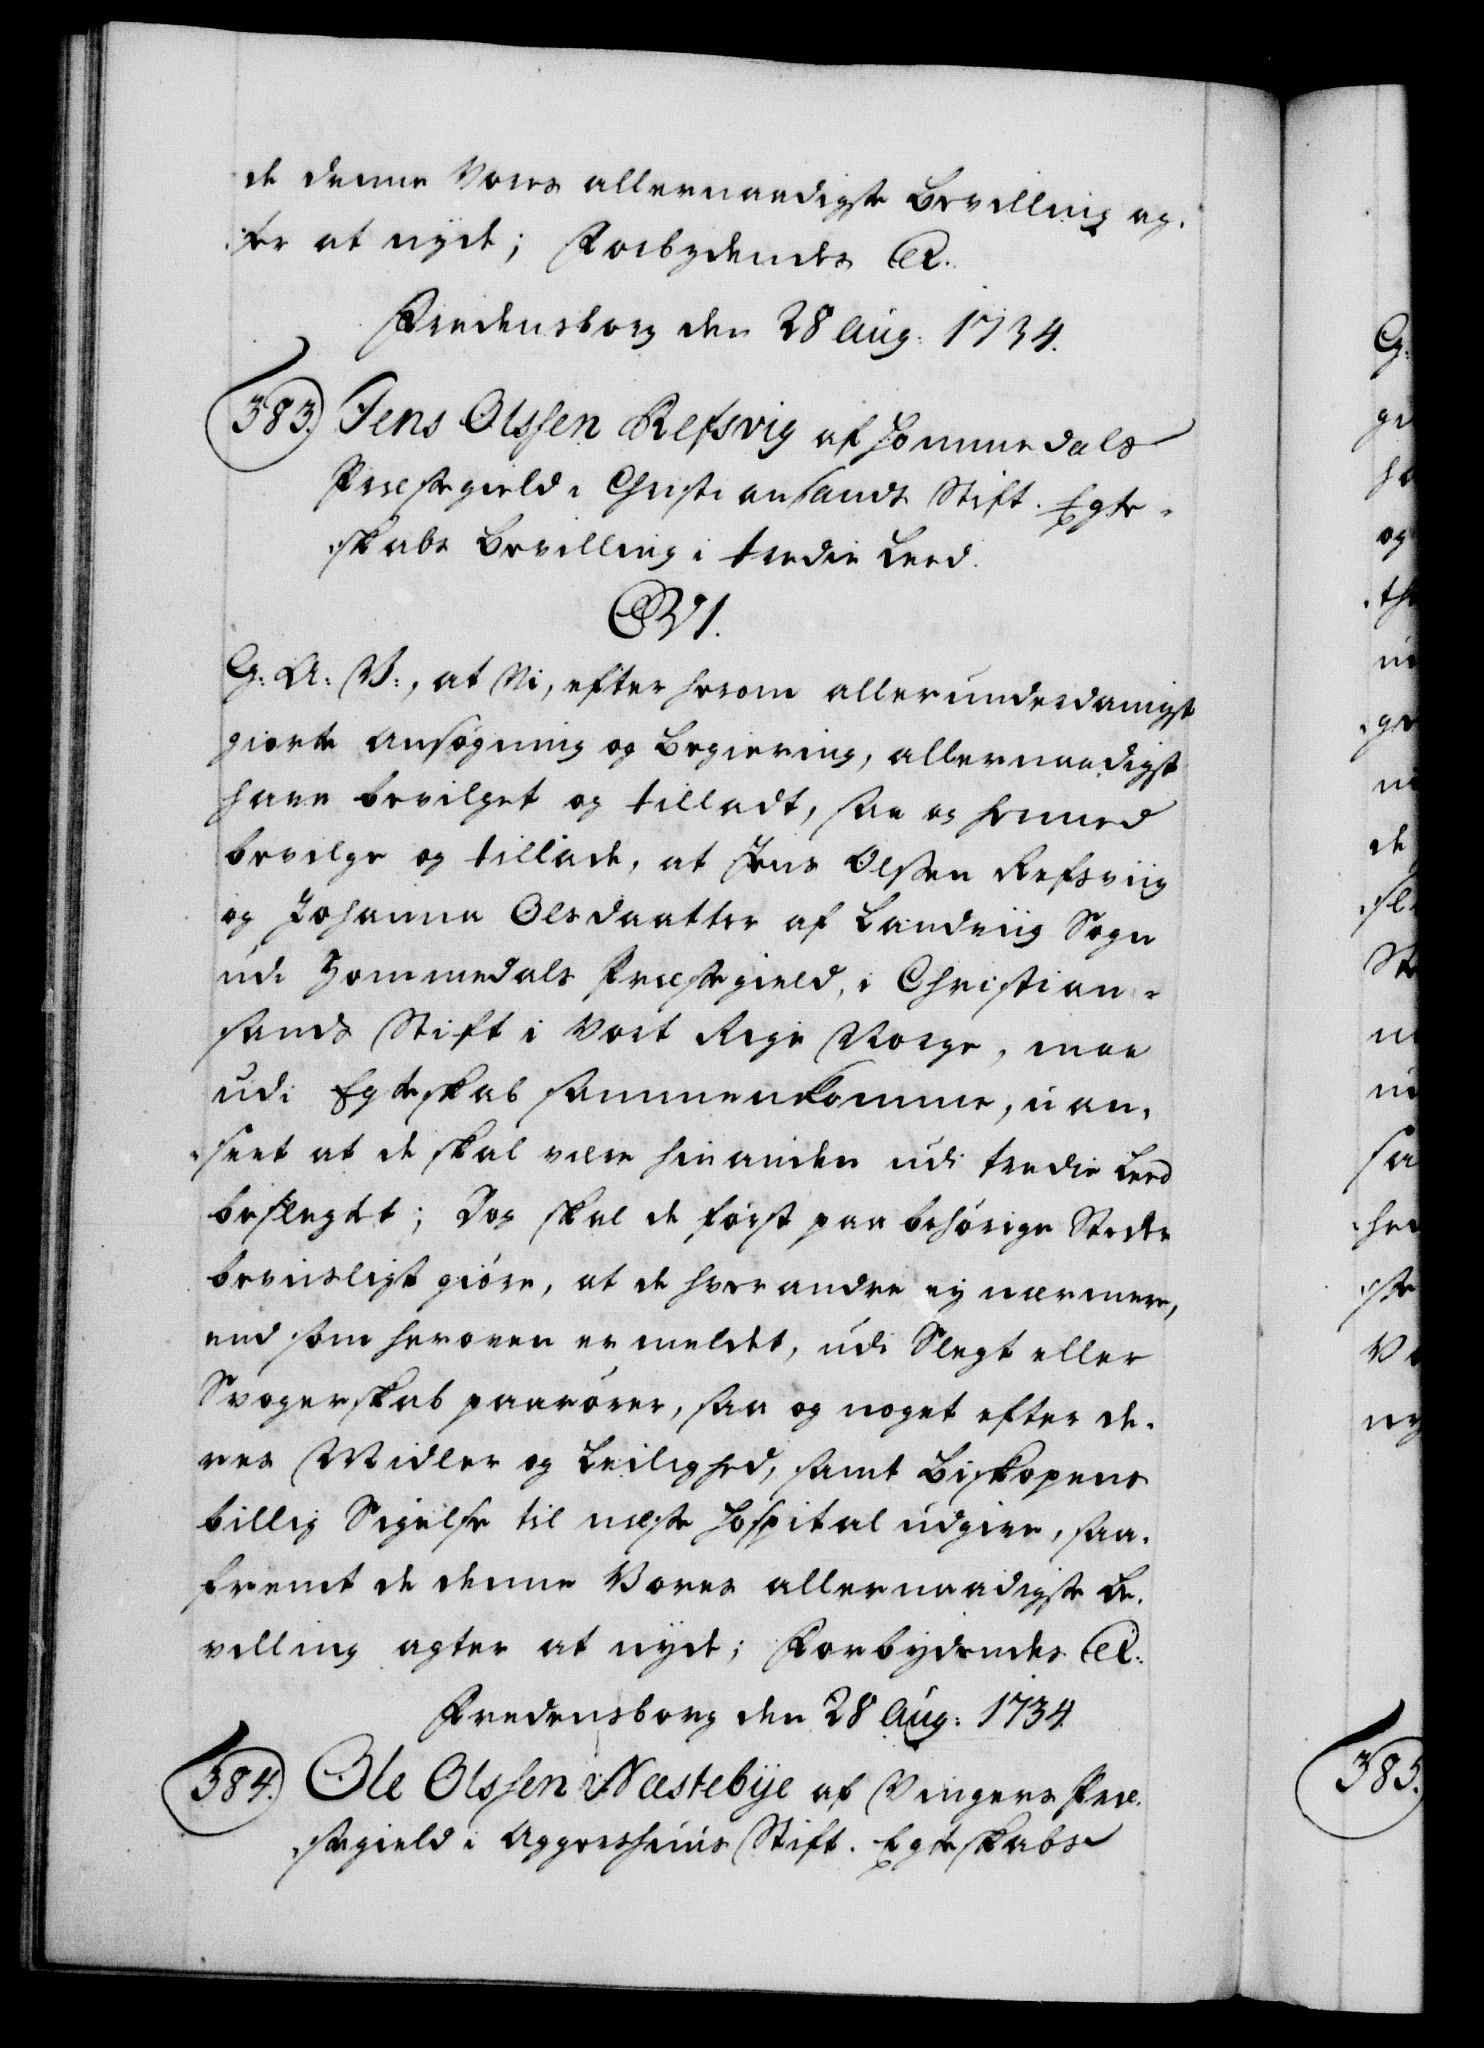 de denne Vores allernaadigste Bevilling ag-
ter at nyde; Forbydendes &c.
Fredensborg den 28 Aug: 1734.
383. Jens Olssen Refsvig af Hommedals
Præstegield i Christiansands Stift. Egte-
skabs Bevilling i tredie Leed.
C VI.
G: A: V:, at Vi, efter herom allerunderdanigst
giorte Ansøgning og Begiering, allernaadigst
have bevilget og tilladt, saa og hermed
bevilge og tillade, at Jens Olssen Refsviig
og Johanna Olsdaatter af Landviig Sogn
udi Hommedals Præstegield, i Christian-
sands Stift i Vort Rige Norge, maa
udi Egteskab sammenkomme, uan-
seet at de skal være hinanden udi tredie Leed
beslegtet; Dog skal de først paa behørige Stæder
beviisligt giøre, at de hverandre ej nærmere,
end som heroven er meldet, udi Slegt eller
Svogerskab paarører, saa og noget efter de-
res Midler og Leilighed, samt Biskopens
billig Sigelse til næste Hospital udgive, saa-
fremt de denne Vores allernaadigste Be-
villing agter at nyde; Forbydendes &c.
Fredensborg den 28 Aug: 1734.
384. Ole Olssen Næstebye af Vingers Præ-
stegield i Aggershuus Stift. Egteskabs
385.